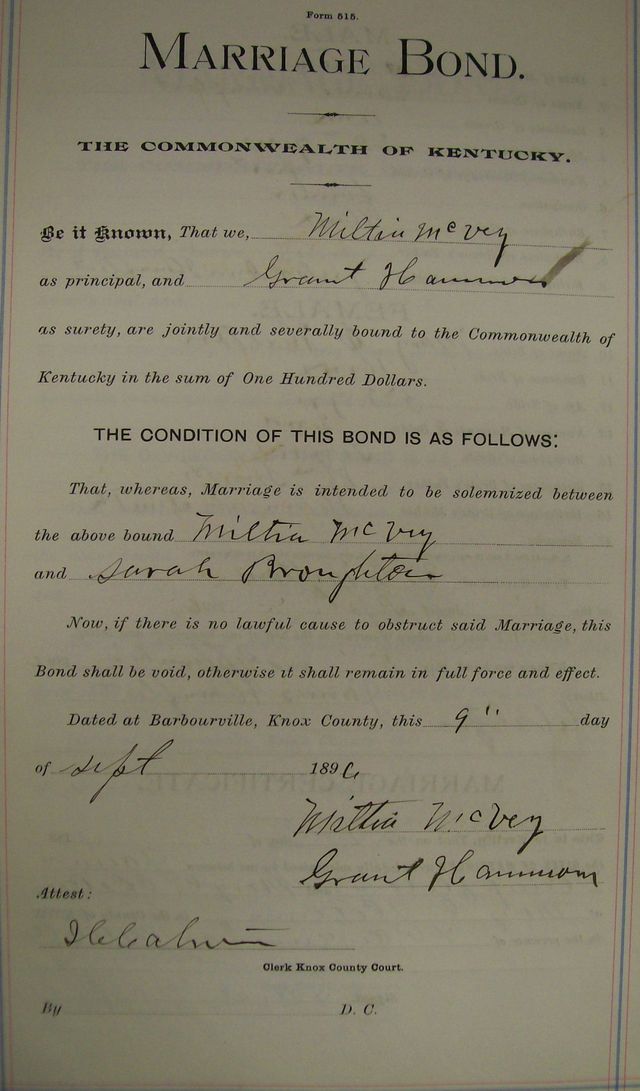 Form 515.
MARRIAGE BOND.
THE COMMONWEALTH OF KENTUCKY.
Be it Known, That we, Miltia McVey
as principal, and Grant Hammon
as surety, are jointly and severally bound to the Commonwealth of
Kentucky in the sum of One Hundred Dollars.
THE CONDITION OF THIS BOND IS AS FOLLOWS:
That, whereas, Marriage is intended to be solemnized between
the above bound Miltia McVey
and Sarah Broughton
Now, if there is no lawful cause to obstruct said Marriage, this
Bond shall be void, otherwise it shall remain in full force and effect.
Dated at Barbourville, Knox County, this 9" day
of Sept 1896
Miltia McVey
Grant Hammon
Attest:
Clerk Knox County Court.
By D. C.